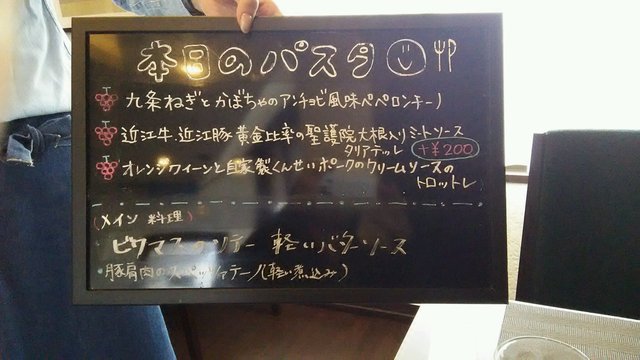 本日のパスタ
九条ねぎとかぼちゃのアンチョビ風味ペペロンチーノ
近江牛、近江豚黄金比率の聖護院大根入りミートソース
タリアテッレ +¥200
オレンジクイーンと自家製くんせいポークのクリームソースの
トロットレ
(メイン 料理)
ビワマスのソテー 軽いバターソース
・豚肩肉のスペッツァティーノ(軽い煮込み)